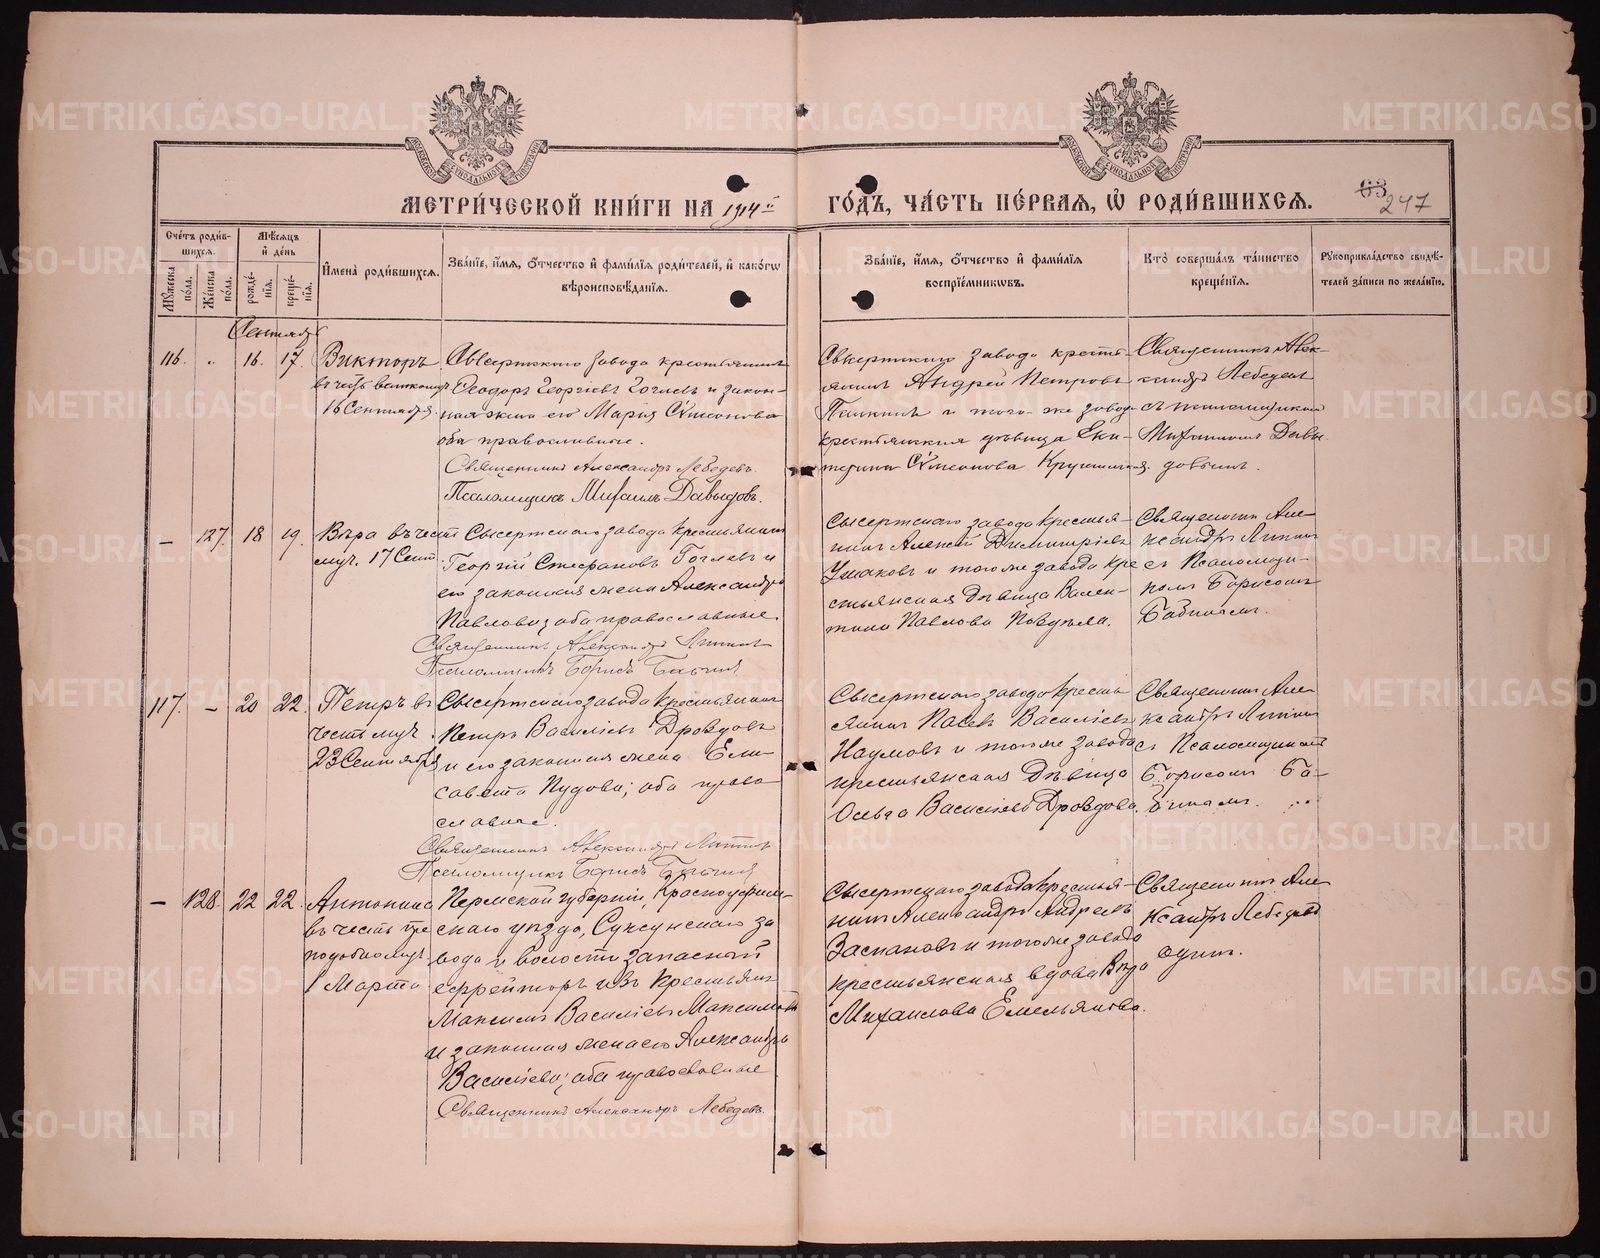 МЕТРИ́ЧЕСКОЙ КНИ́ГИ НА 1914 й
ГО́ДЪ, ЧА́СТЬ ПЕ́РВАЯ, Ѡ҆ РОДИ́ВШИХСЯ.
63
247
Сче́тъ роди́в-
шихся.
Мѣ́сяцъ
и҆ де́нь
Му́жеска по́ла.
Же́нска по́ла.
рожде́-нїѧ.
креще́-нїѧ.
И҆мена̀ роди́вшихся.
Зва́нїе, и҆́мя, ѻ҆́тчество и҆ фами́лїя роди́телей, и҆ како́гѡ
вѣроисповѣ́данїя.
Зва́нїе, и҆́мя, ѻ҆́тчество и҆ фами́лїя
воспрїе́мникѡвъ.
Кто̀ соверша́лъ та́инство
креще́нїя.
Рꙋкоприкла́дство свидѣ́-
телей за́писи по жела́нїю.
Сентябрь
116. " 16. 17.
Викторъ
въ честь
16 Сентября
Сысертскаго завода крестьянинъ
Ѳеодоръ Георгіевъ Гоглевъ и закон-
ная жена его Марія Симонова
оба православные.
Священникъ Александръ Лебедевъ.
Псаломщикъ Михаилъ Давыдовъ.
Сысертскаго завода кресть-
янинъ Андрей Петровъ
и того-же завода
крестьянская дѣвица Ека-
терина Симонова
Священникъ Алек-
сандръ Лебедевъ
съ псаломщикомъ
Михаиломъ Давы-
довымъ.
— 127. 18 19.
Вѣра въ честь
муч. 17 Сент.
Сысертскаго завода крестьянинъ
Георгій Стефановъ Гоглевъ и
его законная жена Александра
Павлова; оба православные
Священникъ Александръ
Псаломщикъ Борисъ
Сысертскаго завода крестья-
нинъ Алексій Димитріевъ
Ушаковъ и тогоже завода кре-
стьянская дѣвица Вален-
тина Павлова
Священникъ Але-
ксандръ
съ Псаломщи-
комъ Борисомъ
117. — 20 22.
Петръ въ
честь муч.
23 Сентября
Сысертскаго завода крестьянинъ
Петръ Василіевъ Дроздовъ
и его законная жена Ели-
савета Пудова; оба право
славные.
Священникъ Александръ
Псаломщикъ Борисъ
Сысертскаго завода кресть
янинъ Василіевъ
Наумовъ и тогоже завода
крестьянская дѣвица
Ольга Василіева Дроздова.
Священникъ Але-
ксандръ
съ Псаломщикомъ
Борисомъ
— 128. 22 22.
Антонина
въ честь пре
подобномуч.
1 Марта
Пермской губерніи, Красноуфим-
скаго уѣзда, Суксунскаго за
вода и волости запасный
ефрейторъ изъ крестьянъ
Максимъ Василіевъ Максимовъ
и законная жена его Александра
Василіева; оба православные
Священникъ Александръ Лебедевъ.
Сысертскаго завода крестья-
нинъ Александръ Андреевъ
и тогоже завода
крестьянская вдова Вѣра
Михаилова Емельянова.
Священникъ Але-
ксандръ Лебедевъ
одинъ.
METRIKI.GASO-URAL.RU